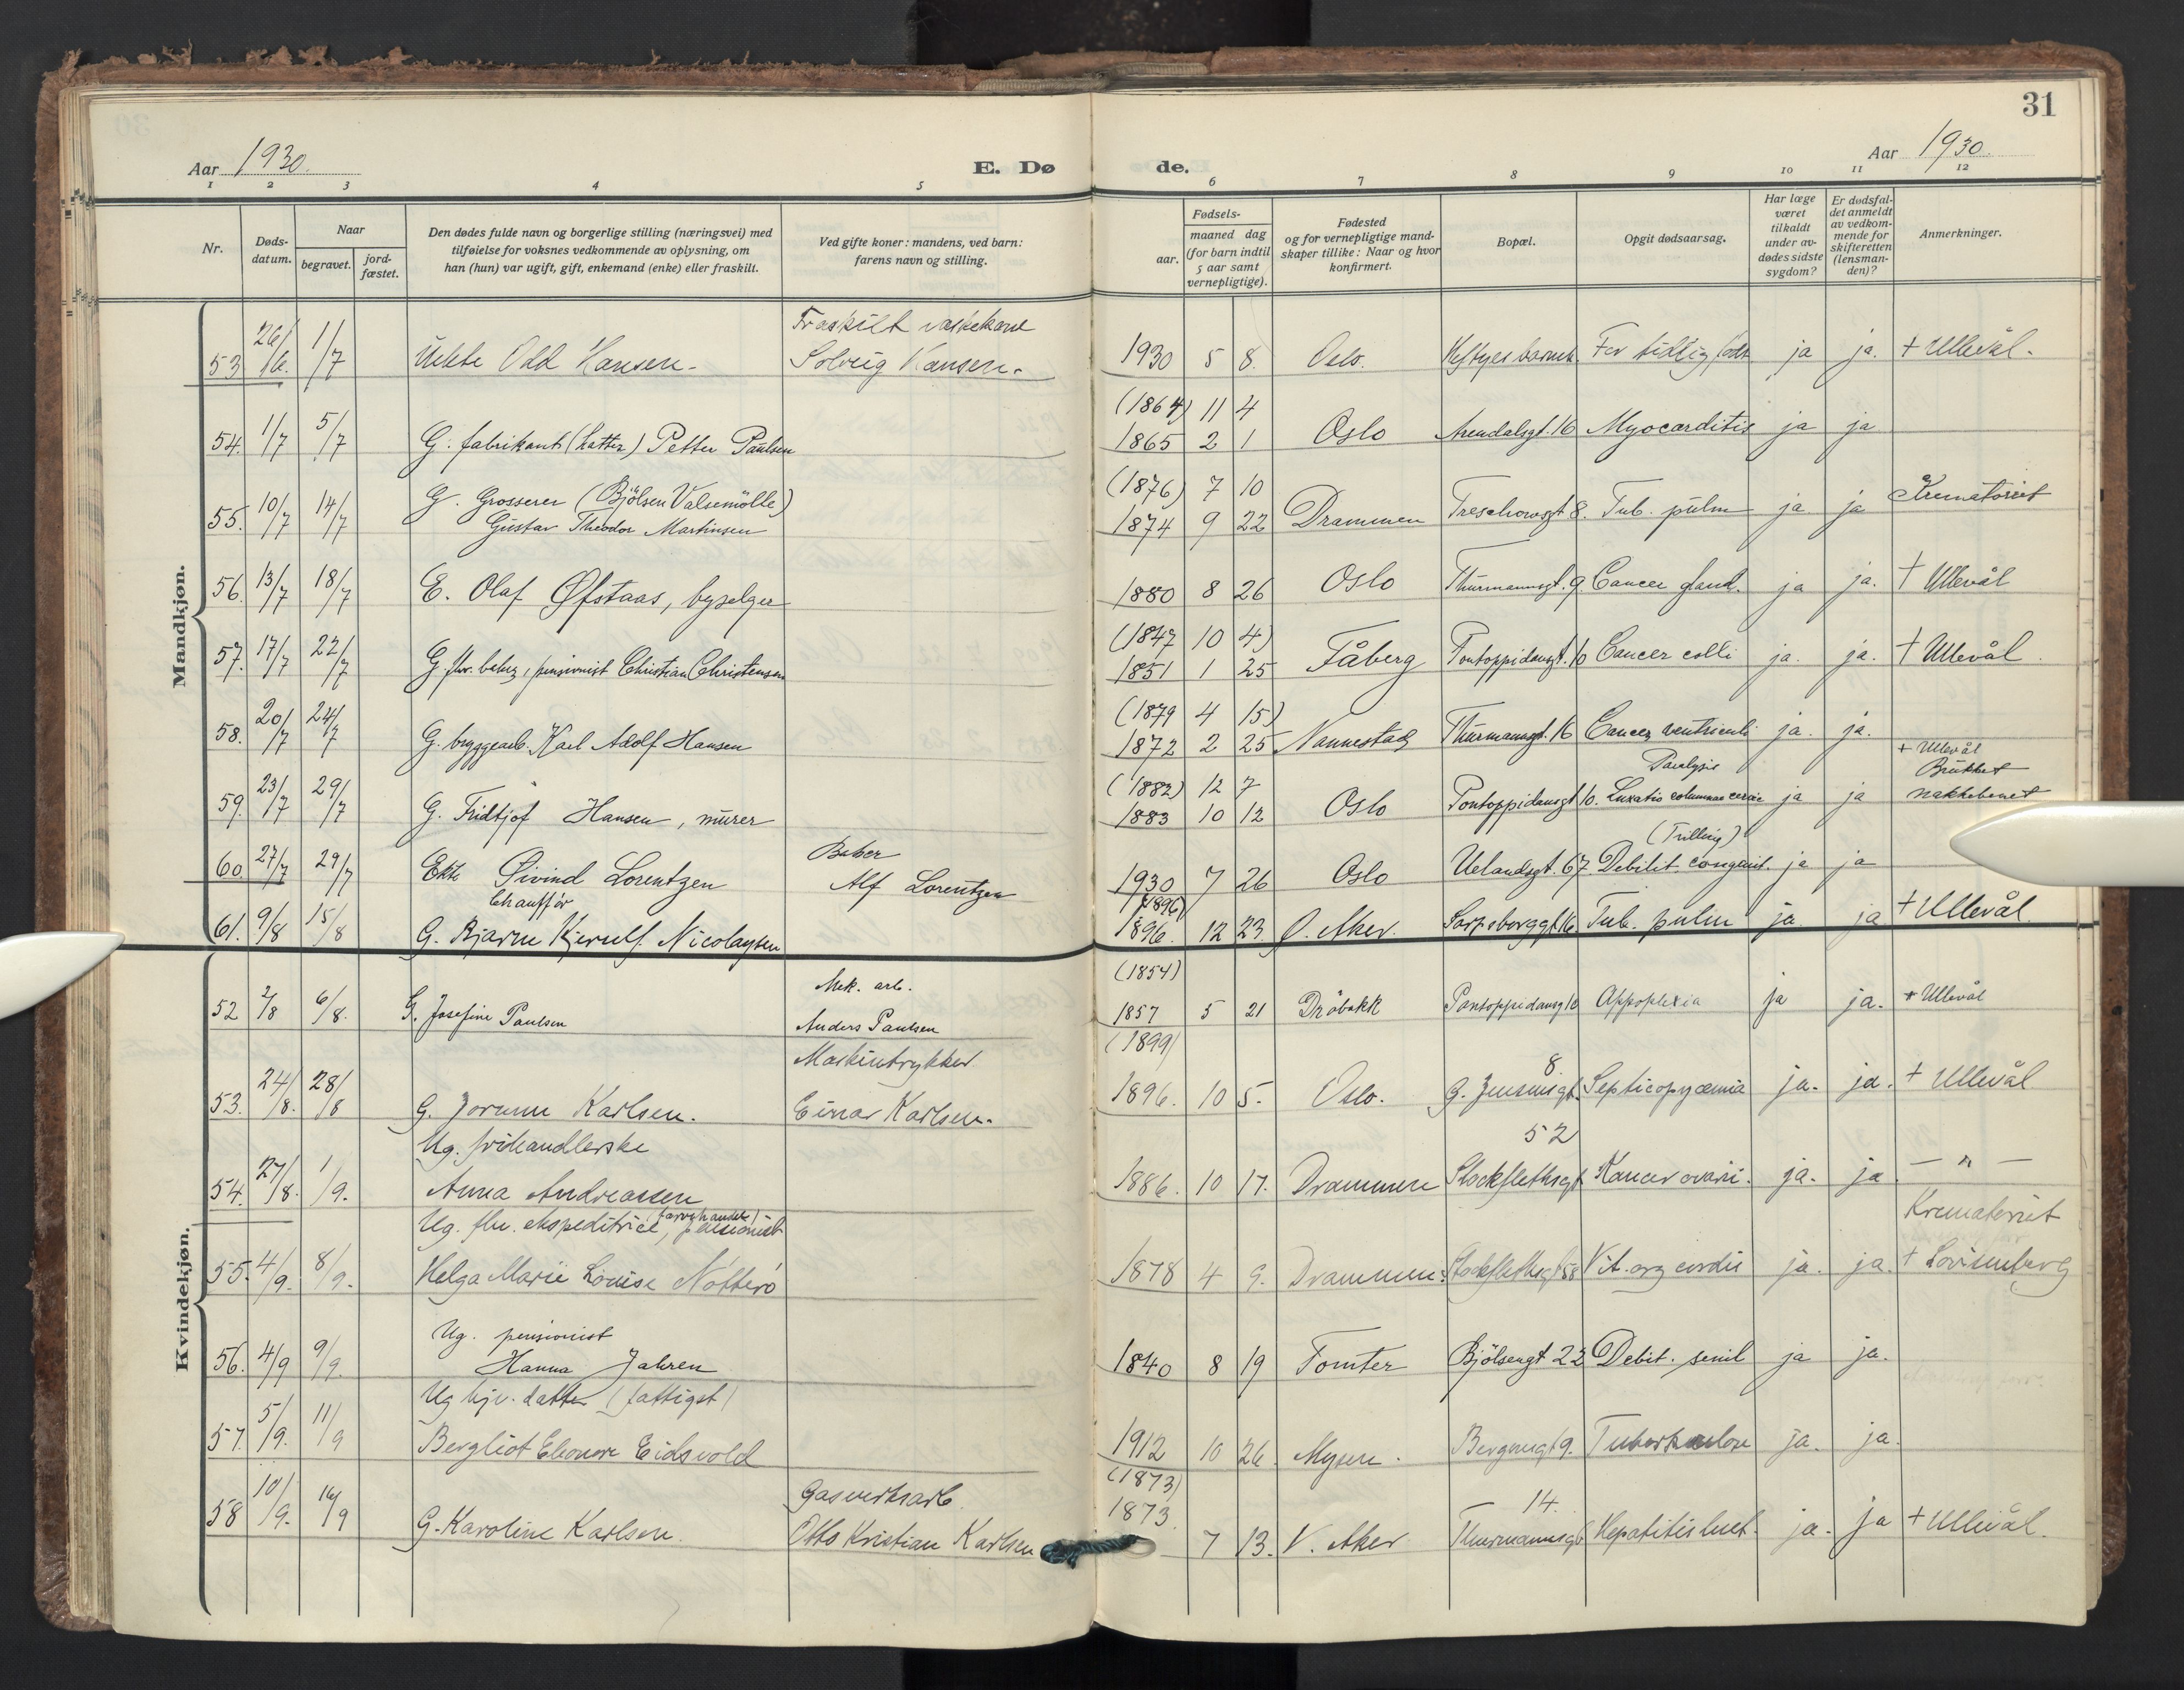 31
Aar 1930.
E. Dø de.
Aar 1930.
1 2 3 4 5 6 7 8 9 10 11 12
Nr.
Døds-datum.
Naar
begravet.
jord-fæstet.
Den dødes fulde navn og borgerlige stilling (næringsvei) med
tilføielse for voksnes vedkommende av oplysning, om
han (hun) var ugift, gift, enkemand (enke) eller fraskilt.
Ved gifte koner: mandens, ved barn:
farens navn og stilling.
Fødsels-
aar.
maaned dag
(for barn indtil
5 aar samt
vernepligtige).
Fødested
og for vernepligtige mand-
skaper tillike: Naar og hvor
konfirmert.
Bopæl.
Opgit dødsaarsag.
Har læge
været
tilkaldt
under av-
dødes sidste
sygdom?
Er dødsfal-
det anmeldt
av vedkom-
mende for
skifteretten
(lensman-
den)?
Anmerkninger.
Mandkjøn.
Fraskilt vaskekone
53 26/6. 1/7 Uekte Odd Hansen. Solveig Hansen. 1930 5 8. Oslo. For tidlig født ja ja. + Ullevål.
(1864) 11 4
54. 1/7 5/7 G. fabrikant (hatter) Petter Paulsen 1865 2 1 Oslo Arendalsgt. 16 Myocarditis ja ja
G. Grosserer (Bjölsen Valsemölle) (1876) 7 10
55. 10/7 14/7 Gustav Theodor Martinsen 1874 9 22 Drammen Treschowsgt 8. Tub. pulm ja ja Krematoriet
56. 13/7 18/7 E. Olaf Øfstaas, byselger 1880 8 26 Oslo Thurmannsgt. 9. Cancer gland. ja ja. + Ullevål
(1847 10 4)
57. 17/7 22/7 G. fhv. betj., pensionist Christian Christensen 1851 1 25 Fåberg Pontoppidansgt. 10 Cancer colli ja. ja. + Ullevål.
(1879 4 15)
58. 20/7 24/7 G. bryggearb. Karl Adolf Hansen 1872 2 25 Nannestad Thurmannsgt. 16 Cancer ventriculi ja. ja.
(1882) 12 7 Paralysis + Ullevål Brukket
59. 23/7 29/7 G. Fridtjof Hansen, murer 1883 10 12 Oslo Pontoppidansgt 10. Luxatio columnae cervic ja ja nakkebenet
Baker (Trilling)
60 27/7 29/7 Ekte Øivind Lorentzen Alf Lorentzen 1930 7 26 Oslo Uelandsgt. 67 Debilit. congenit. ja ja
Chauffør (1896)
61. 9/8 15/8 G. Bjarne Kjerulf Nicolaysen 1896. 12 23. Ø. Aker. Sarpsborggt 16 Tub. pulm ja. ja + Ullevål.
Kvindekjøn.
Mek. arb. (1854)
52 2/8 6/8. G. Josefine Paulsen Anders Paulsen 1857 5 21 Dröbakk Pontoppidansg 10 Appoplexia ja ja. + Ullevål
Maskintrykker (1899) 8.
53. 24/8. 28/8 G. Jorunn Karlsen. Einar Karlsen. 1896. 10 5. Oslo. G. Jensensgt. Septicopyæmie ja. ja. + Ullevål
Ug. frihandlerske 52
54. 27/8. 1/9. Anna Andreassen 1886. 10 17. Drammen Stockflethsgt Kancer ovarii. ja. ja. — " —
Ug. fhv. ekspeditrice, (farvehandel) pensionist Krematoriet
55. 4/9. 8/9. Helga Marie Louise Nötterö 1878 4 9. Drammen. Stockflethsgt 58 Vit. org cordis ja. ja. + Lovisenberg
Ug. pensionist
56. 4/9 9/9. Hanna Jahren 1840 8 19 Tomter Bjölsengt 22 Debit. senil ja ja.
Ug hjv. datter (fattigst)
57. 5/9. 11/9 Bergliot Eleonore Eidsvold 1912 10 26. Mysen. 9. Tuberkulose ja. ja.
Gasverksarb. (1873) 14.
58 10/9. 16/9 G. Karoline Karlsen. Otto Kristian Karlsen 1873. 7 13. V. Aker Thurmannsgt Hepatitis luet. ja. ja + Ullevål.